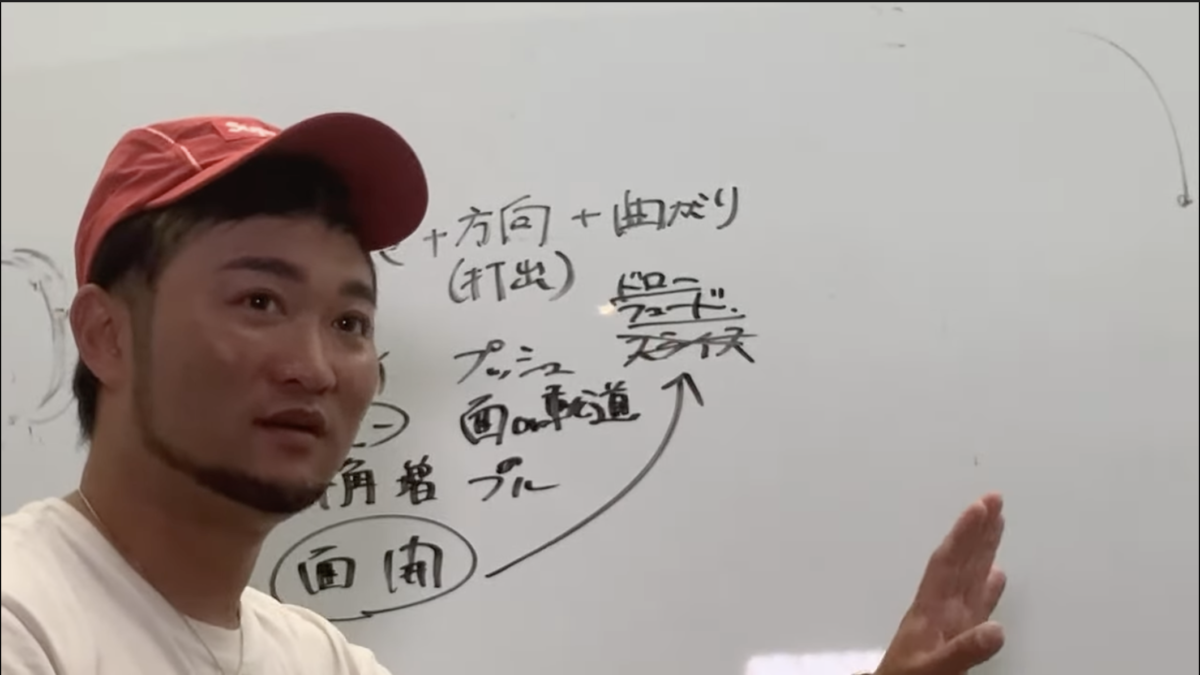 +方向+曲がり
(打出)
ドロー
フェード.
スライス
プッシュ
面or軌道
角増 プル
面開